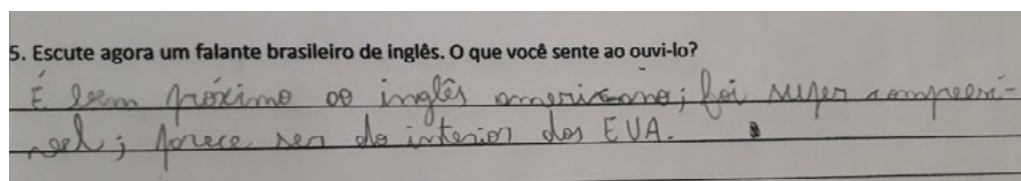 5. Escute agora um falante brasileiro de inglês. O que você sente ao ouvi-lo?
É bem próximo ao inglês americano; foi super compreensí-
vel; parece ser do interior dos EUA.